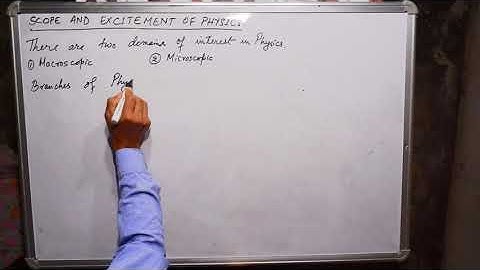 SCOPE AND EXCITEMENT OF PHYSICS
There are two domains of interest in Physics.
① Macroscopic ② Microscopic
Branches of Phys